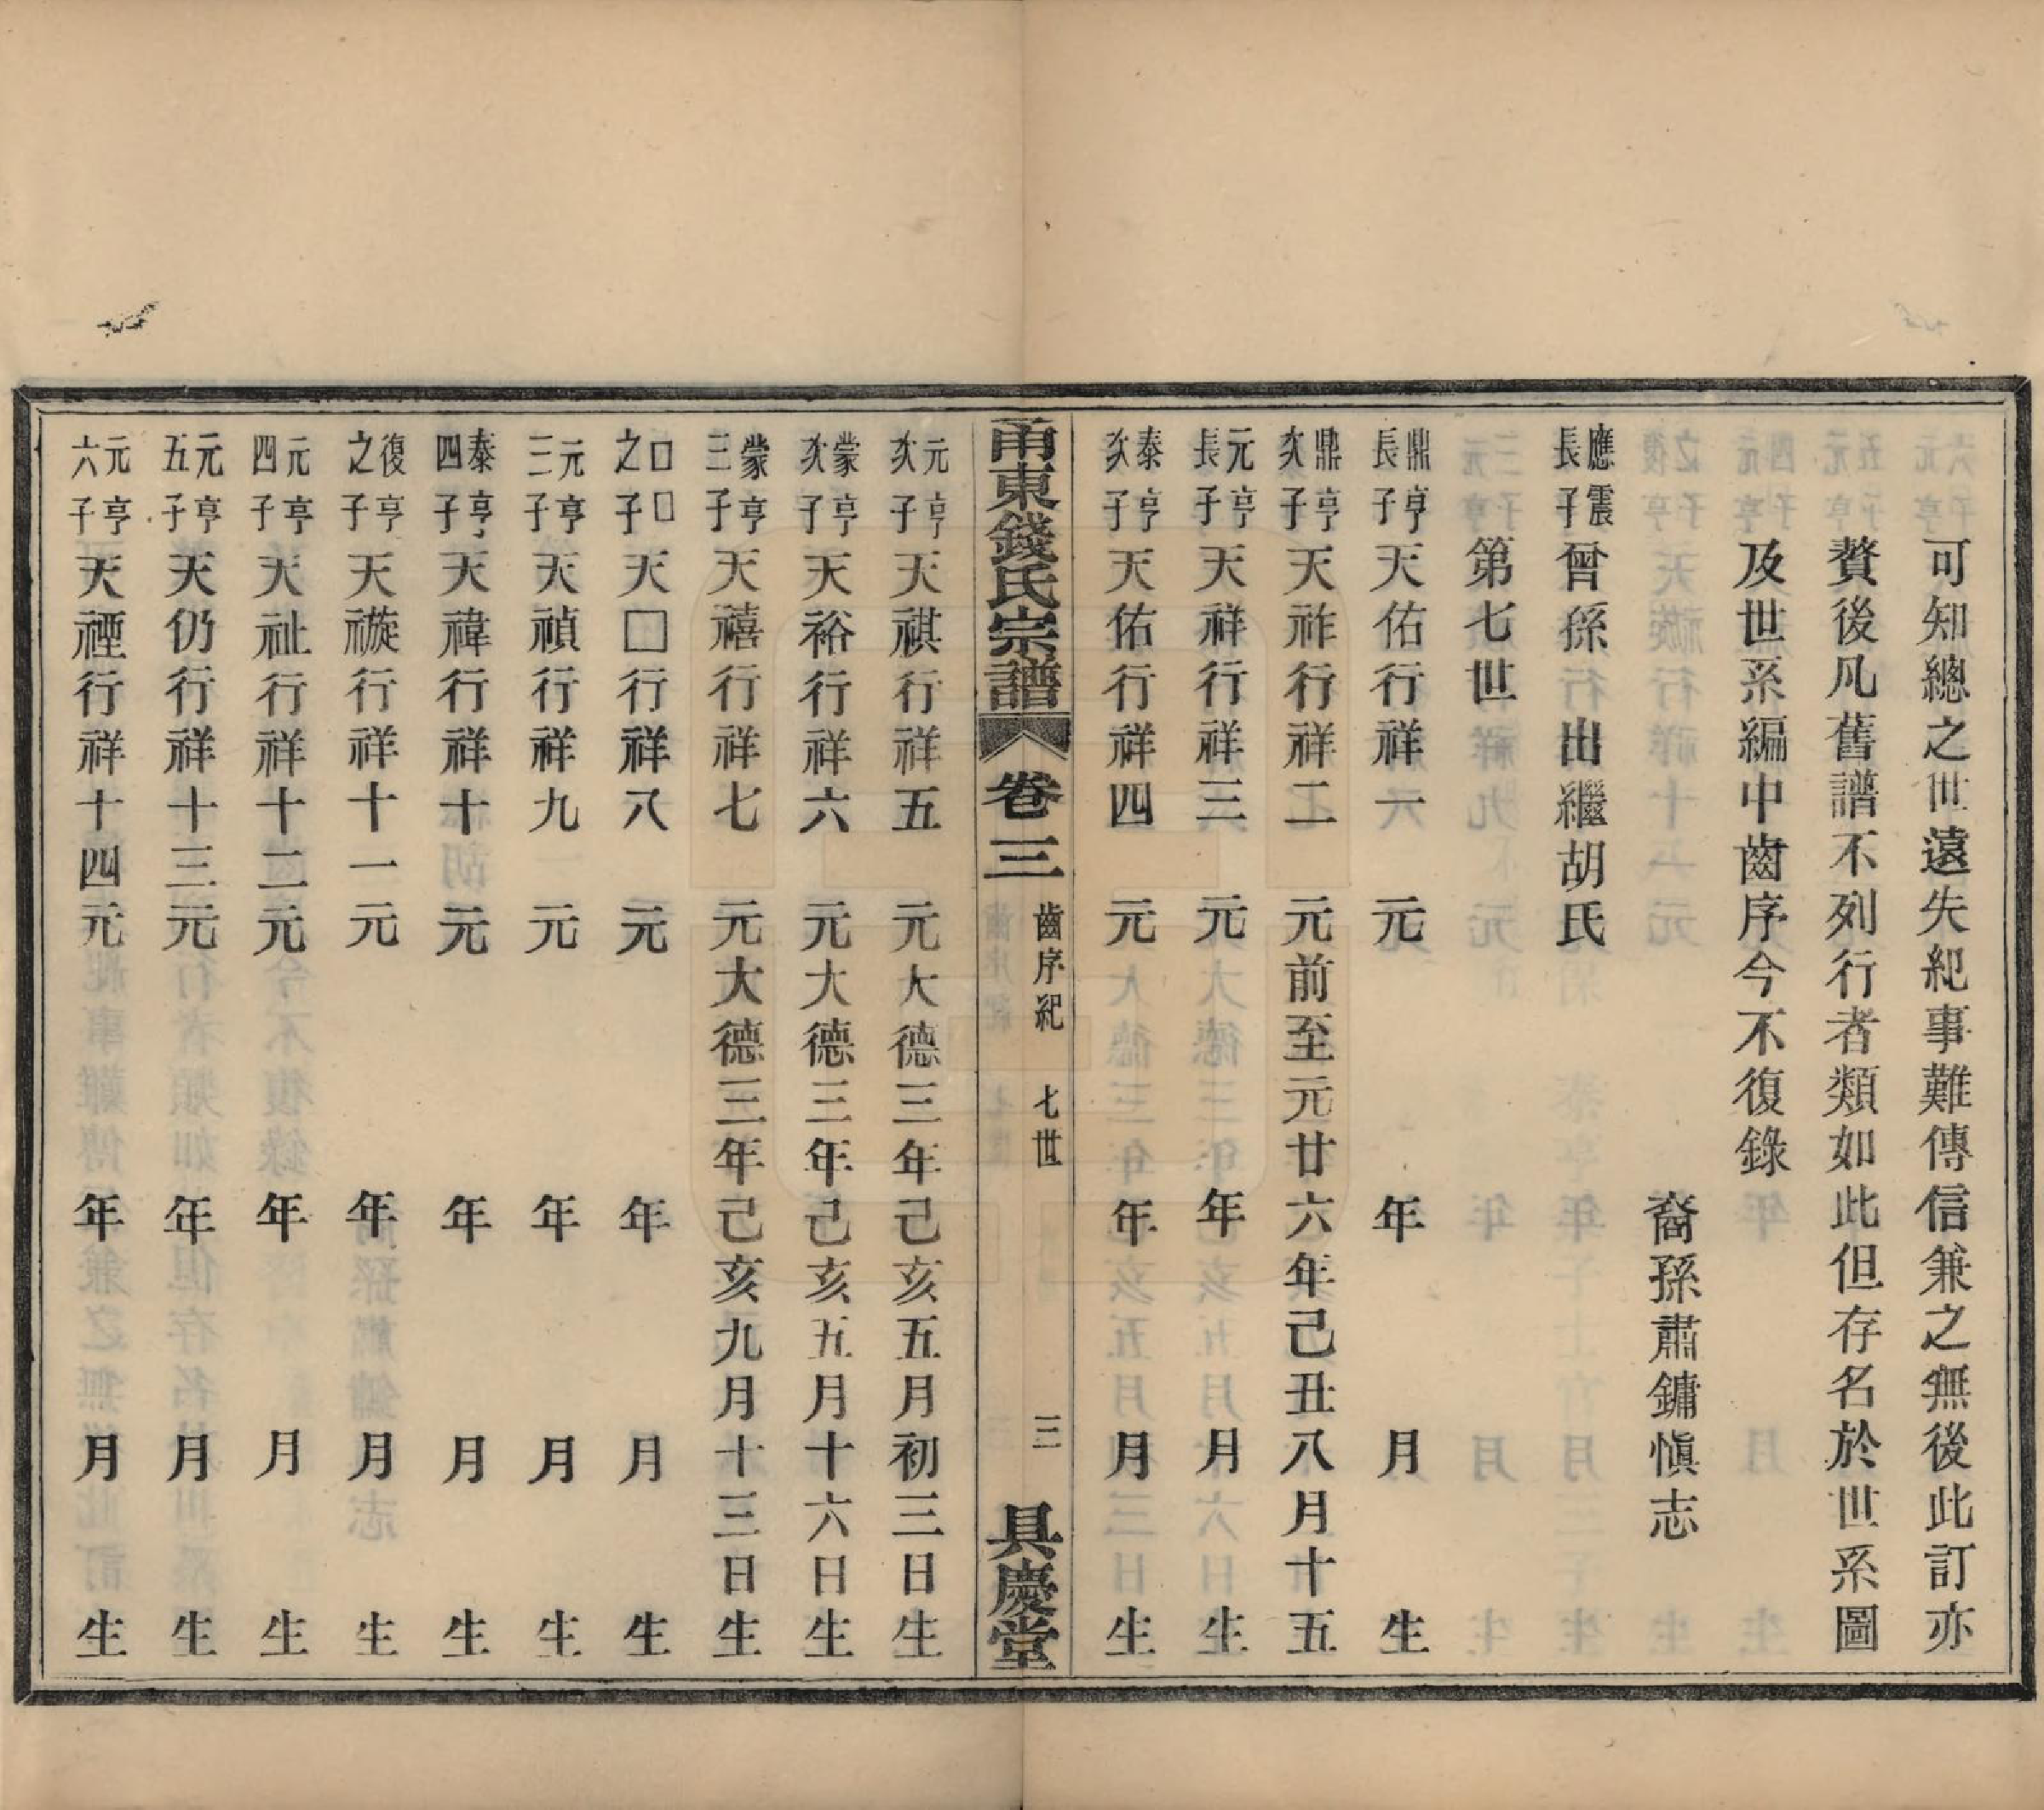 可知總之世遠失紀事難傳信兼之無後此訂亦
贅後凡舊譜不列行者類如此但存名於世系圖
及世系編中齒序今不復錄
裔孫肅鏞慎志
應震長子曾孫　出繼胡氏
第七世
鼎亨長子天佑行祥一　元　年　月　生
鼎亨次子天祚行祥二　元前至元廿六年己丑八月十五
元亨長子天祥行祥三　元　年　月　生
泰亨次子天佑行祥四　元　年　月　生
甬東錢氏宗譜　卷三　齒序紀　七世　三　具慶堂
元亨次子天祺行祥五　元大德三年己亥五月初三日生
蒙亨次子天裕行祥六　元大德三年己亥五月十六日生
蒙亨三子天禧行祥七　元大德三年己亥九月十三日生
□□之子天□行祥八　元　年　月　生
元亨三子天禎行祥九　元　年　月　生
泰亨四子天禕行祥十　元　年　月　生
復亨之子天禭行祥十一元　年　月　生
元亨四子天祉行祥十二元　年　月　生
元亨五子天礽行祥十三元　年　月　生
元亨六子天禋行祥十四元　年　月　生